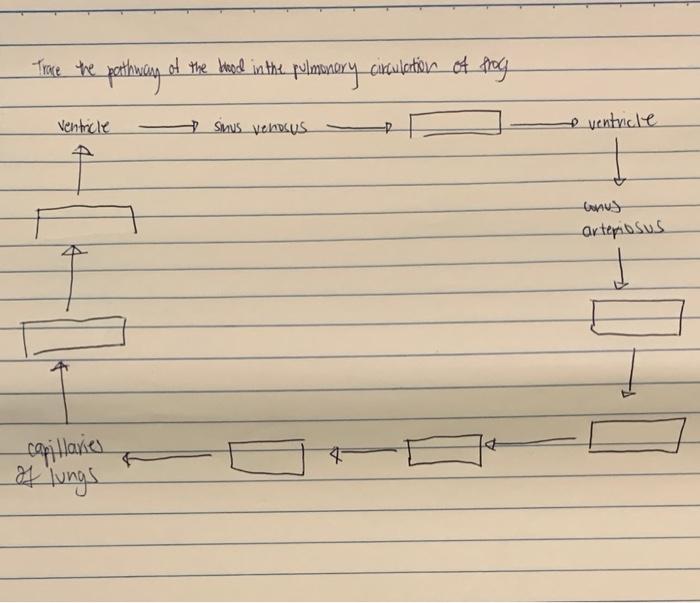 Trace the pathway of the blood in the pulmonary circulation of frog
ventricle → sinus venosus → → ventricle
conus
arteriosus
capillaries
of lungs